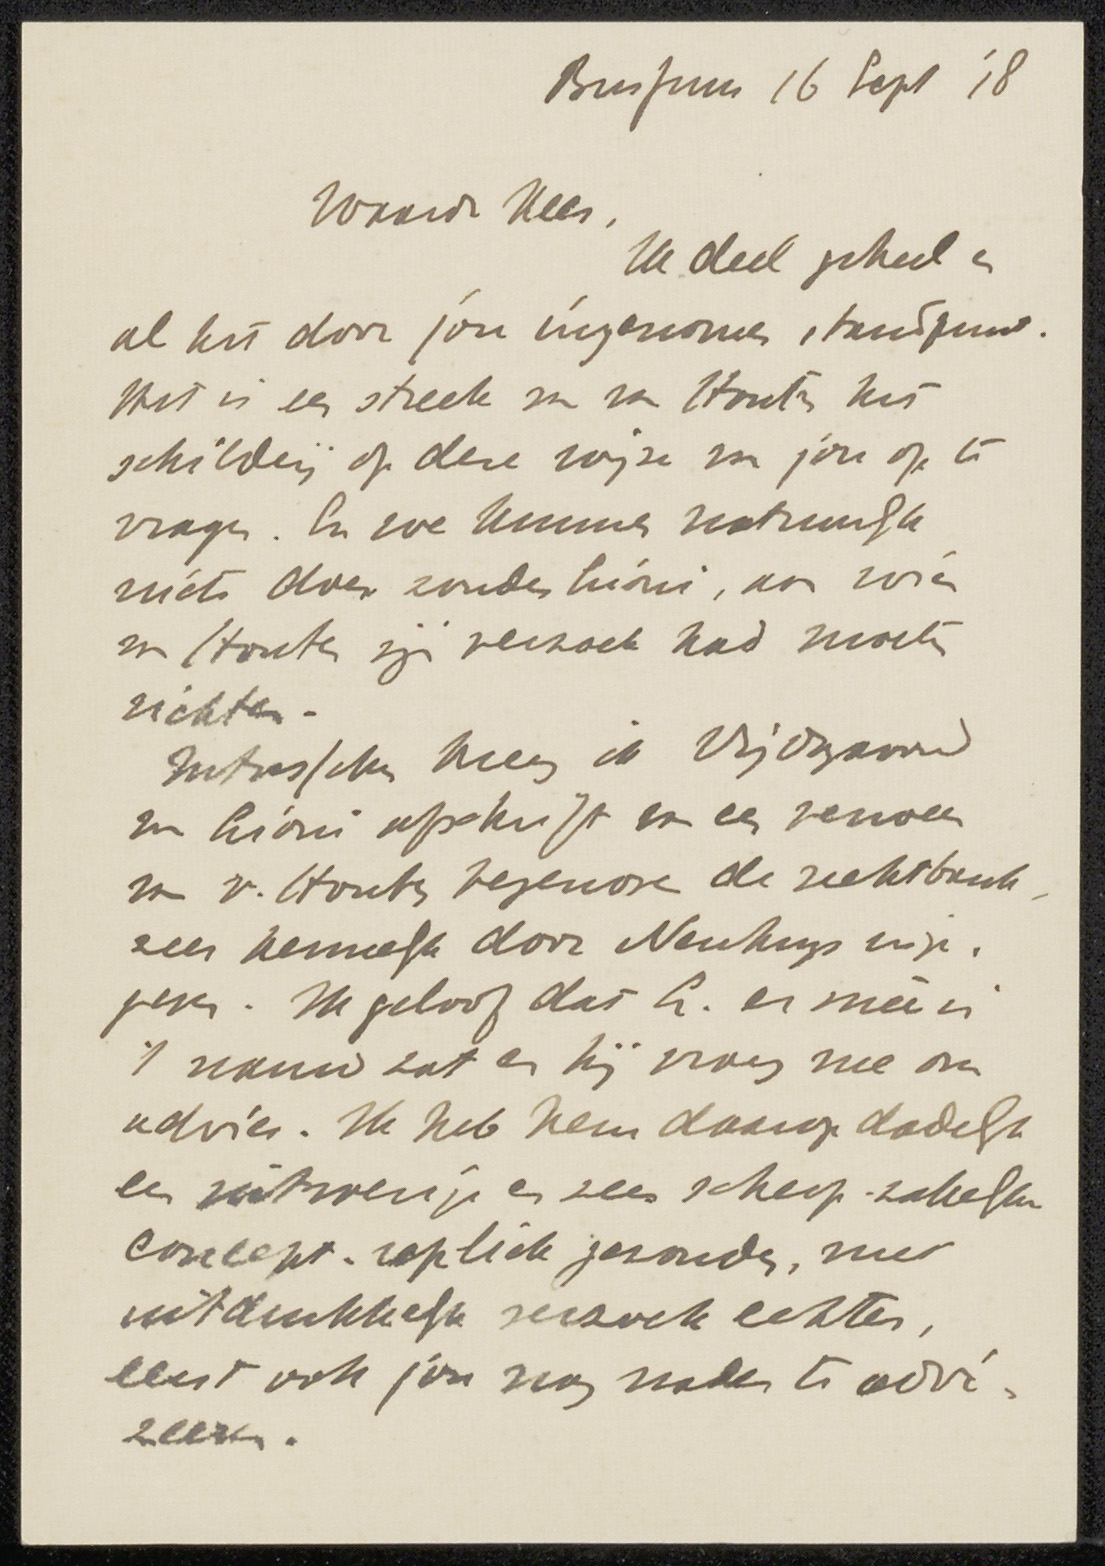 Bussum 16 Sept '18
Waarde Kees,
Ik deel geheel en
al het door jou ingenomen standpunt.
Het is een streek van van Houten het
schilderij op deze wijze van jou op te
vragen. En we kunnen natuurlijk
niets doen zonder Gióni, aan wien
van Houten zijn verzoek had moeten
richten.
Intusschen kreeg ik Vrijdagavond
van Gióni afschrift van een verweer
van v. Houten tegenover de rechtbank,
zeer kennelijk door Neuhuys inge-
geven. Ik geloof dat G. er mee in
't nauw zat en hij vroeg me om
advies. Ik heb hem daarop dadelijk
een uitvoerige en zeer scherp-zakelijke
concept-repliek gezonden, met
uitdrukkelijk verzoek echter,
eerst ook jou nog nader te advi-
zeeren.